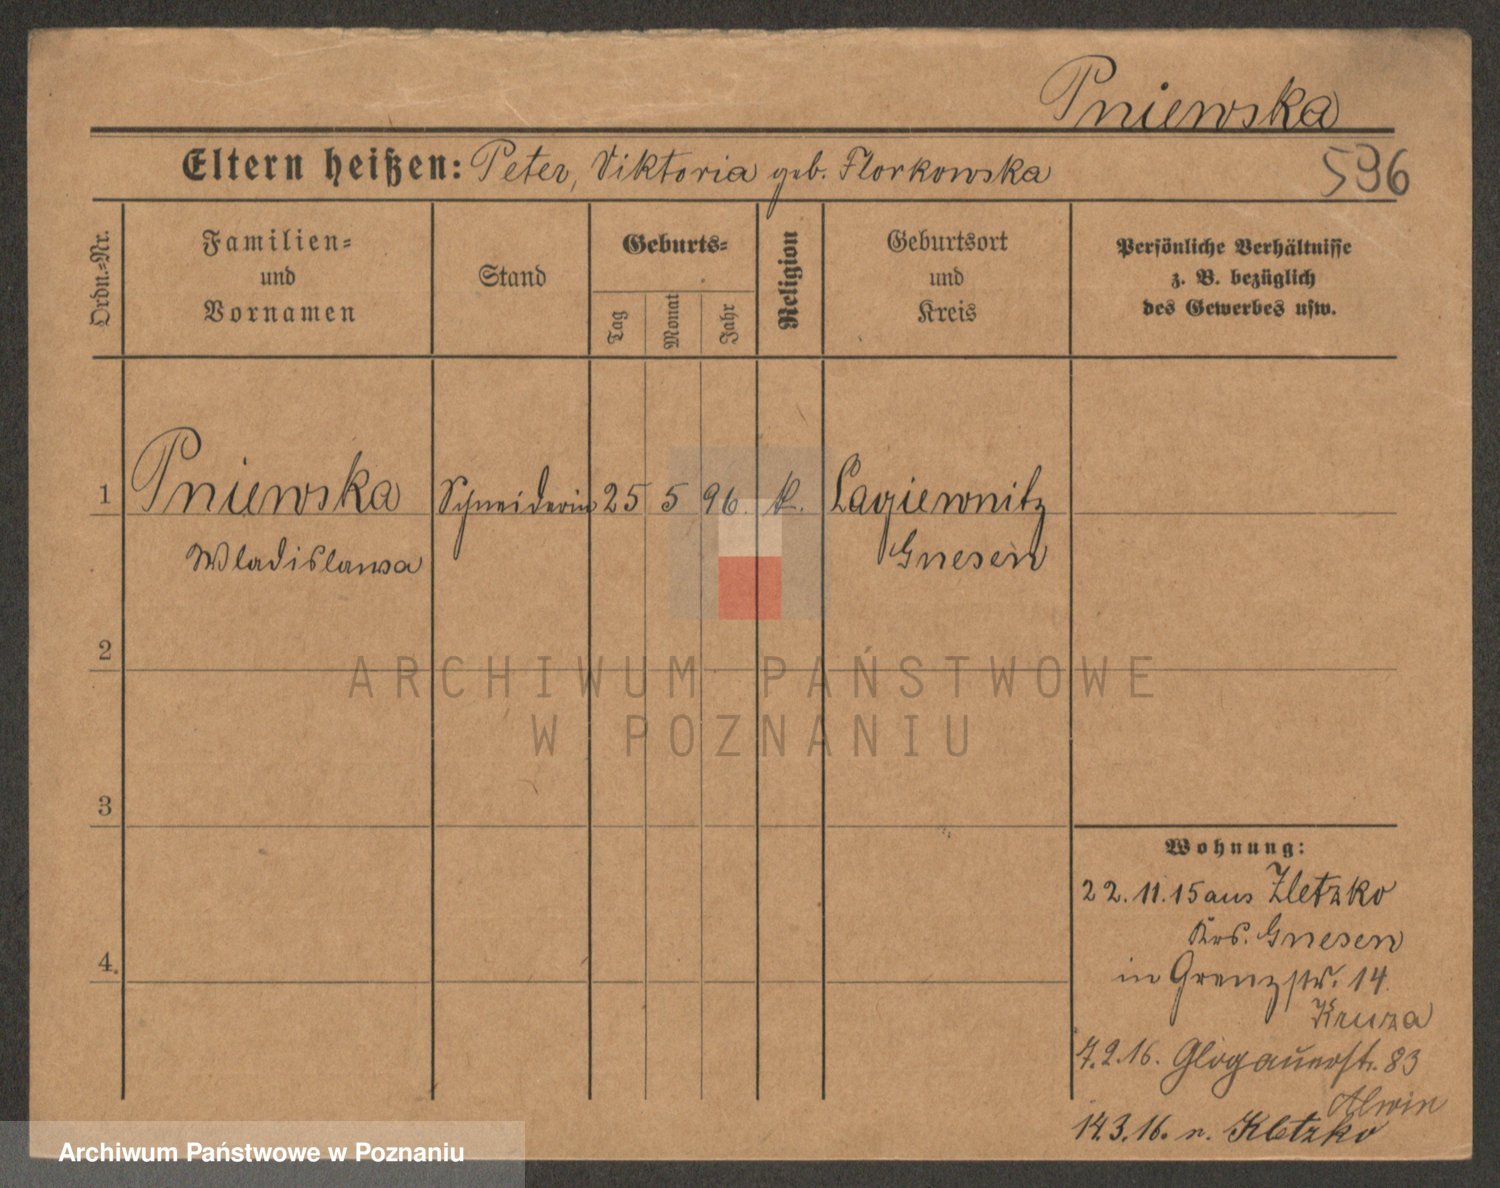 Pniewska
Eltern heißen: Peter, Viktoria geb. Florkowska
596
Ordn.=Nr.
Familien=
und
Vornamen
Stand
Geburts=
Tag
Monat
Jahr
Religion
Geburtsort
und
Kreis
Persönliche Verhältnisse
z. B. bezüglich
des Gewerbes usw.
1 Pniewska Schneiderin 25 5 96. k. Lagiewnitz
Wladislawa Gnesen
2
3
4
Wohnung:
22.11.15 aus Zletzko
Krs. Gnesen
in Grenzstr. 14.
Kruza
7.2.16. Glogauerstr. 83
Alwin
14.3.16. n. Kletzko
ARCHIWUM PAŃSTWOWE
W POZNANIU
Archiwum Państwowe w Poznaniu